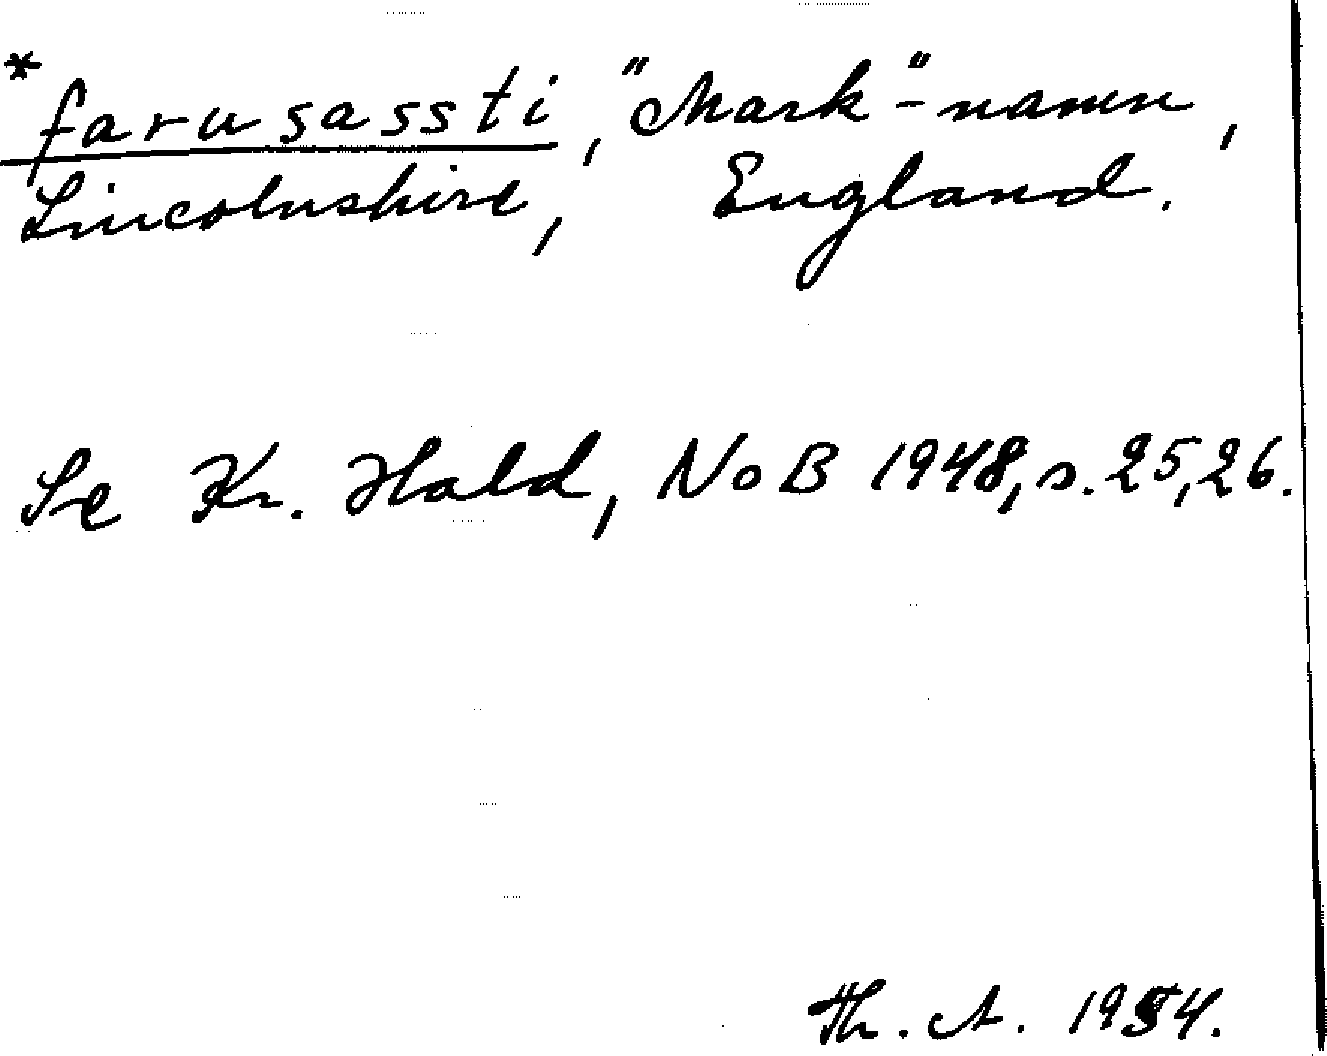 *farusassti, "Mark"-namn,
Lincolnshire, England.
Se Kr. Hald, NoB 1948, s. 25, 26.
Th. A. 1954.